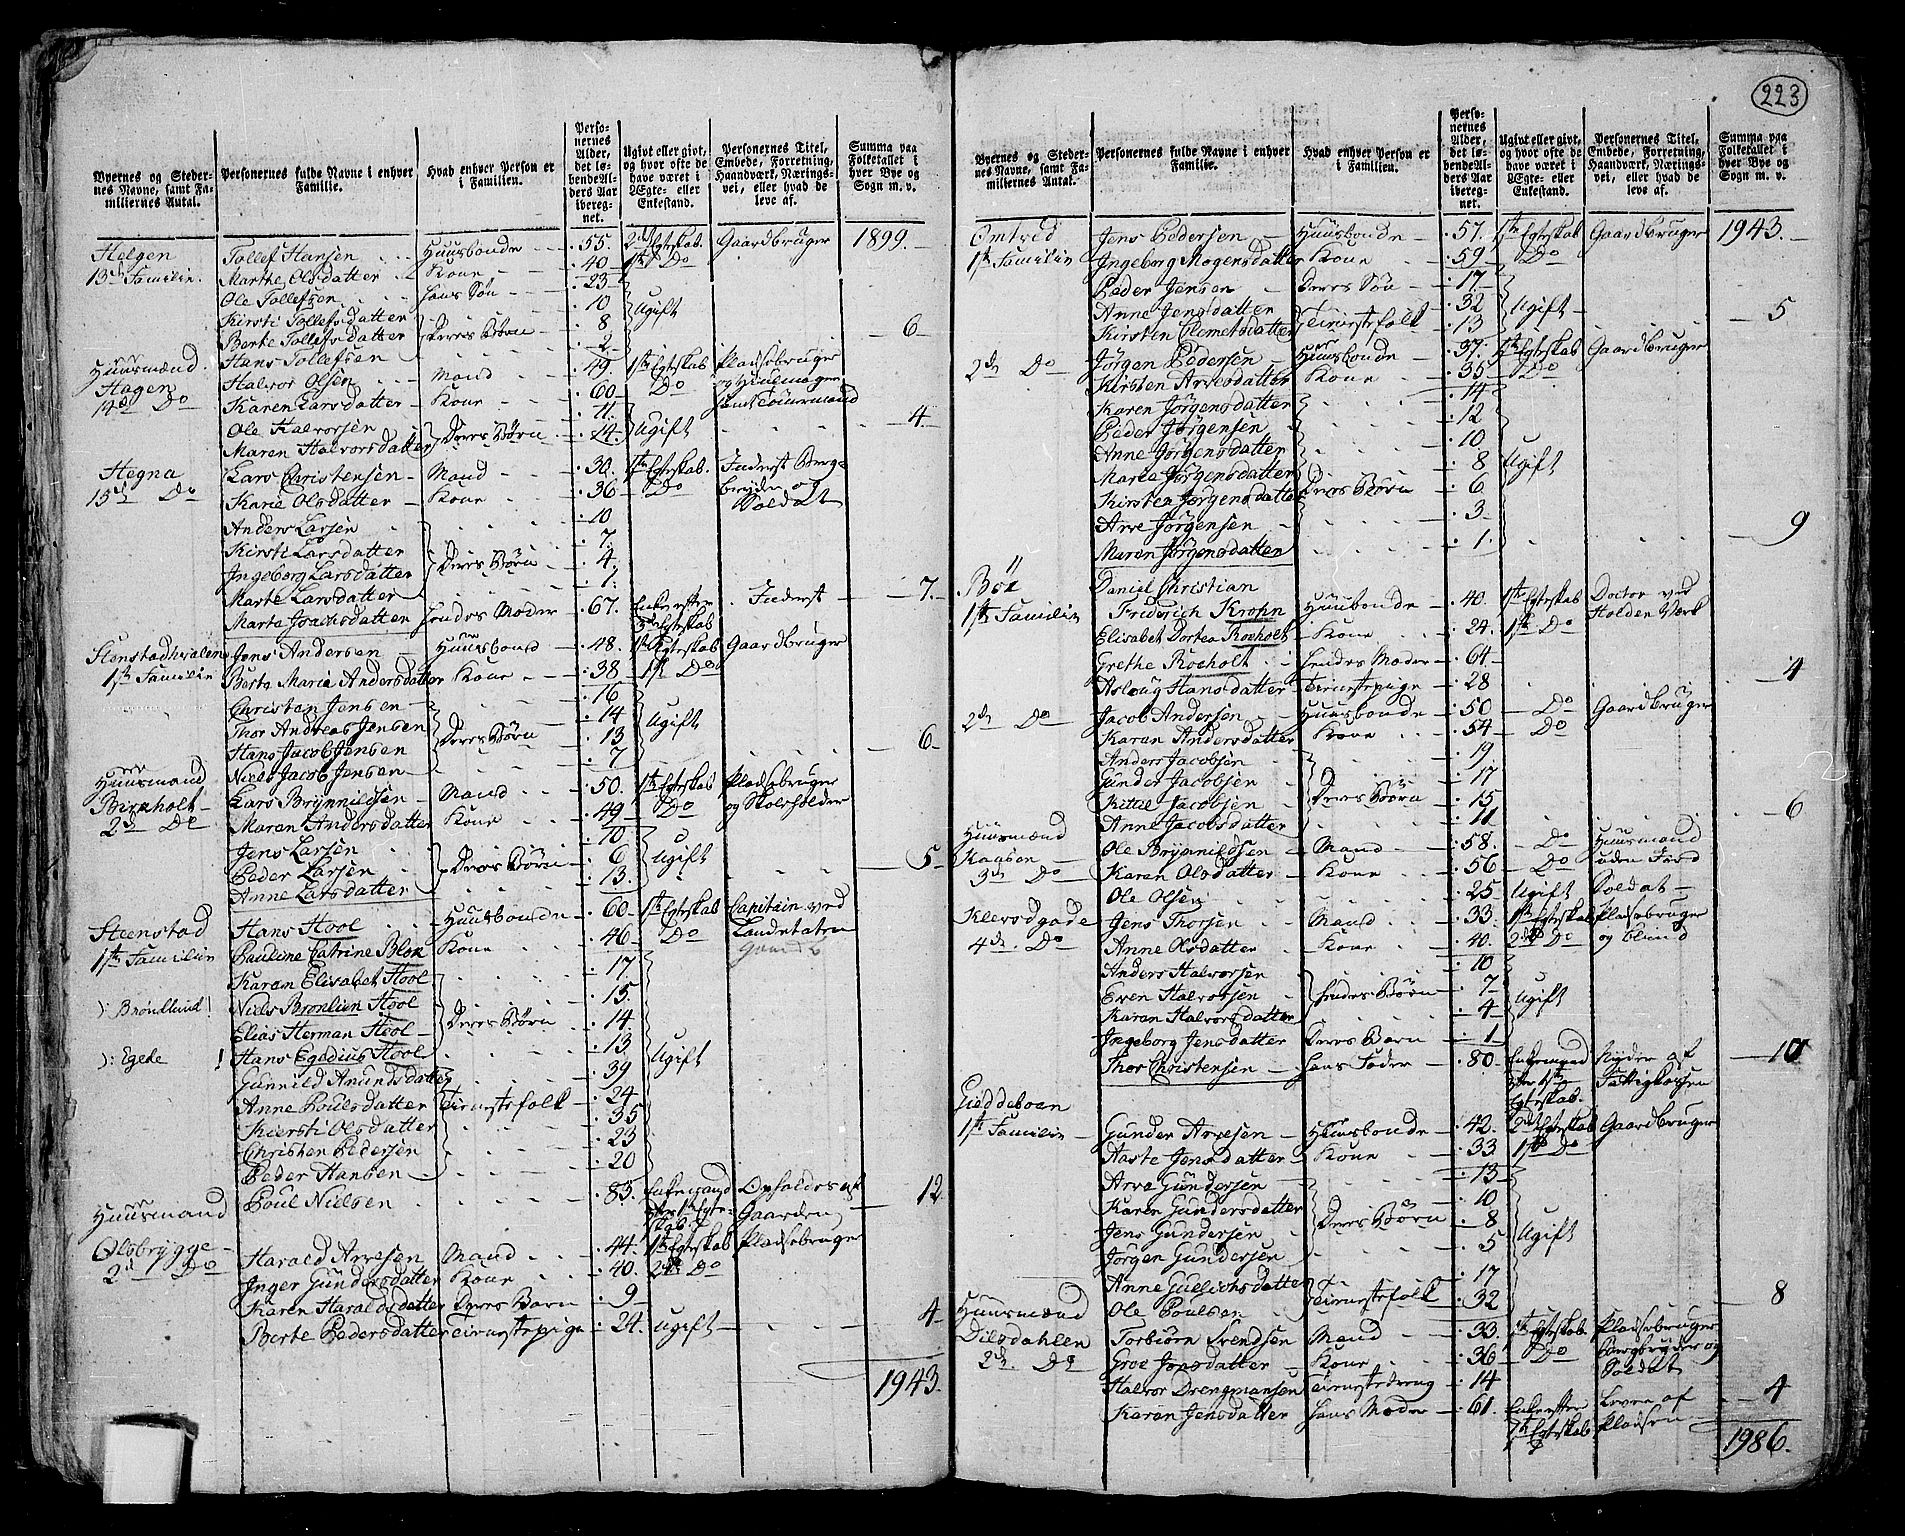 223
Byernes og Stedernes Navne, samt Familiernes Antal.
Personernes fulde Navne i enhver Familie.
Hvad enhver Person er i Familien.
Personernes Alder, det løbende Alders Aar iberegnet.
Ugivt eller givt, og hvor ofte de have været i Ægte- eller Enkestand.
Personernes Titel, Embede, Forretning, Haandværk, Næringsvei, eller hvad de leve af.
Summa paa Folketallet i hver Bye og Sogn m. v.
Helgen Tollef Hansen Huusbonde 55. 2den Egteskab. Gaardbruger 1899.
13de Familie. Marthe Olsdatter Kone 40 1ste Do
Ole Tollefsen hans Søn 23
Kirsti Tollefsdatter 10
Berte Tollefsdatter Deres Børn 8 Ugift
Hans Tollefsen 2 6
Huusmænd.
Hagen Halvor Olsen Mand 49. 1ste Egteskab Pladsebruger og Hiulmager samt Tømmermand
14de Do Karen Larsdatter Kone 60 Do
Ole Halvorsen 11.
Maren Halvorsdatter Deres Børn 24. Ugift 4
Hegna Lars Christensen Mand 30. 1ste Egteskab. Inderst Bergbryder og Soldat
15de Do Karie Olsdatter Kone 36 Do
Anders Larsen 10
Kirsti Larsdatter 7.
Ingeborg Larsdatter Deres Børn 4
Marte Larsdatter 1. 7.
Marte Isachsdatter hendes Moder 67. Enke efter Egteskab Inderst
Stenstadhvalen Jens Andersen Huusbond 48. 1ste Egteskab Gaardbruger
1ste Familie Berte Maria Andersdatter Kone 38 1ste Do
Christen Jensen 16
Thor Andreas Jensen 14
Hans Jacob Jensen Deres Børn 13 Ugift
Niels Jacob Jensen 7 6
Huusmand
Birkholt Lars Brynnildsen Mand 50. 1ste Egteskab Pladsebruger og Skoleholder
2den Do Maren Andersdatter Kone 49 Do
Jens Larsen 10
Peder Larsen Deres Børn 6 Ugift
Anne Larsdatter 13. 5
Steenstad Hans Hool Huusbonde 60 1ste Egteskab Capitain ved Landetaten
1ste Familie Pauline Catrine Blok Kone 46 Do
Karen Elisabet Hool 17
): Brøndlund! Niels Bronlien Hool 15.
Elias Herman Hool Deres Børn 14
): Egede ! Hans Egedius Hool 13 Ugift
Gunnild Amundsdatter 39
Anne Poulsdatter Tienestefolk 24
Kiersti Olsdatter 35
Christen Pedersen 23
Peder Hansen 20
Poul Nielsen 83. Enkemand efter 1ste Egteskab. Opholdes af Gaarden 12
Huusmand
Olsbrygge Harald Arvesen Mand 44. 1ste Egteskab Pladsebruger
2de Do Inger Gundersdatter Kone 40. 2det Do
Karen Haraldsdatter Deres Barn 9
Berte Pedersdatter Tienestepige 24. Ugift 4
1943.
Byernes og Stedernes Navne, samt Familiernes Antal.
Personernes fulde Navne i enhver Familie.
Hvad enhver Person er i Familien.
Personernes Alder, det løbende Alders Aar iberegnet.
Ugivt eller givt, og hvor ofte de have været i Ægte- eller Enkestand.
Personernes Titel, Embede, Forretning, Haandværk, Næringsvei, eller hvad de leve af.
Summa paa Folketallet i hver Bye og Sogn m. v.
Omtved Jens Pedersen Huusbonde 57. 1ste Egteskab Gaardbruger 1943.
1ste Familie Ingeborg Mogensdatter Kone 59 Do
Peder Jensen Deres Søn 17
Anne Jensdatter 32 Ugift
Kirsten Clemetsdatter Tienestefolk 13 5
2den Do Jørgen Pedersen Huusbonde 37. 1ste Egteskab Gaardbruger
Kirsten Arvesdatter Kone 35 Do
Karen Jørgensdatter 14
Peder Jørgensen 12
Anne Jørgensdatter 10
Marte Jørgensdatter 8 Ugift
Kirsten Jørgensdatter Deres Børn 6
Arve Jørgensen 3
Maren Jørgensdatter 1. 9
Bøe Daniel Christian
1ste Familie Friderich Krohn Huusbonde 40. 1ste Egteskab Doctor ved Holden Værk
Elisabet Dortea Rocholt Kone 24. 1ste Do
Grethe Rocholt hendes Moder 64
Aslaug Hansdatter Tienestepige 28 4
2den Do Jacob Andersen Huusbonde 50 Do Gaardbruger
Karen Andersdatter Kone 54 Do
Anders Jacobsen 19
Gunder Jacobsen 17
Kittil Jacobsen Deres Børn 15
Anne Jacobsdatter 11 6
Huusmænd
Kaasen Ole Brynnildsen Mand 58. Do Huusmand uden Jord
3de Do Karen Olsdatter Kone 56 Do
Ole Olsen 25 Ugift Soldat
Klevsdgade Jens Thorsen Mand 33. 1ste Egteskab Pladsebruger og blind
4de. Do Anne Olsdatter Kone 40. 2det Do
Anders Halvorsen 10
Even Halvorsen hendes Børn 7
Karen Halvorsdatter 4 Ugift
Ingeborg Jensdatter Deres Barn 1
Thor Christensen hans Fader 80. Enkemand efter 1ste Egteskab. Nyder af Fattigkassen 10
Gieddeboen
1ste Familie Gunder Arvesen Huusbonde 42. 2det Egteskab Gaardbruger
Aaste Jensdatter Kone 33 1ste Do
Arve Gundersen 13
Karen Gundersdatter 10
Jens Gundersen Deres Børn 8
Jørgen Gundersen 5 Ugift
Anne Gullichsdatter 17
Huusmænd Ole Poulsen Tienestefolk 32 8
Dilsdahlen Torbiørn Svendsen Mand 33. 1ste Egteskab. Pladsebruger Bergbryder og Soldat
2de. Do Groe Jonsdatter Kone 36 Do
Halvor Drengmansen Tienestedreng 14
Karen Jensdatter hans Moder 61. Enke efter 1ste Egteskab Lever af Pladsen 4
1986.